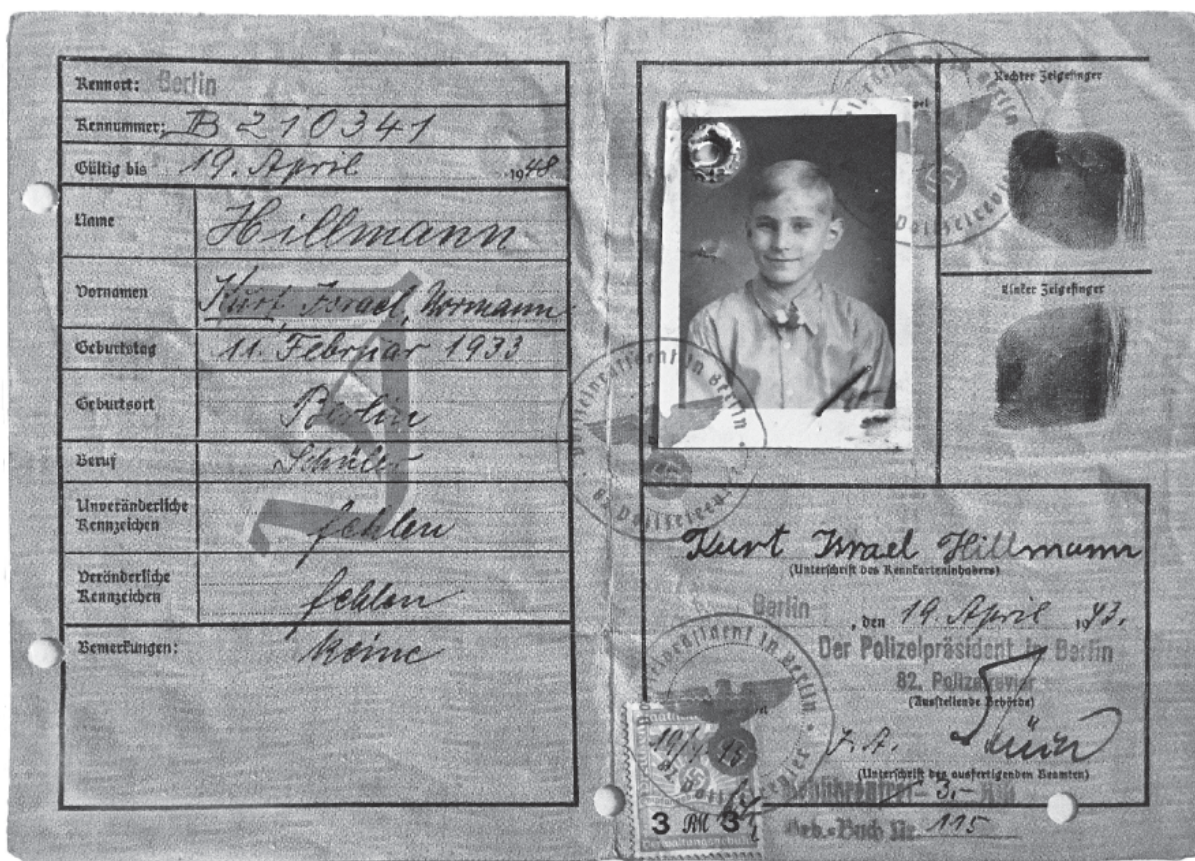 Kennort: Berlin
Kennummer: B 210341
Gültig bis 19. April 1948
Name Hillmann
Vornamen Kurt Israel, Normann
Geburtstag 11. Februar 1933
Geburtsort Berlin
Beruf Schüler
Unveränderliche
Kennzeichen fehlen
Veränderliche
Kennzeichen fehlen
Bemerkungen: Keine
J
Rechter Zeigefinger
Linker Zeigefinger
Der Polizeipräsident in Berlin
82. Polizeirevier
Kurt Israel Hillmann
(Unterschrift des Kennkarteninhabers)
Berlin, den 19. April 1943.
Der Polizeipräsident in Berlin
82. Polizeirevier
(Ausstellende Behörde)
J. A.
(Unterschrift des ausfertigenden Beamten)
Gebührenfrei - 3,- RM
Geb.-Buch Nr. 115
Der Polizeipräsident in Berlin
82. Polizeirevier
19/4 43
3 RM 3
Verwaltungsgebühr